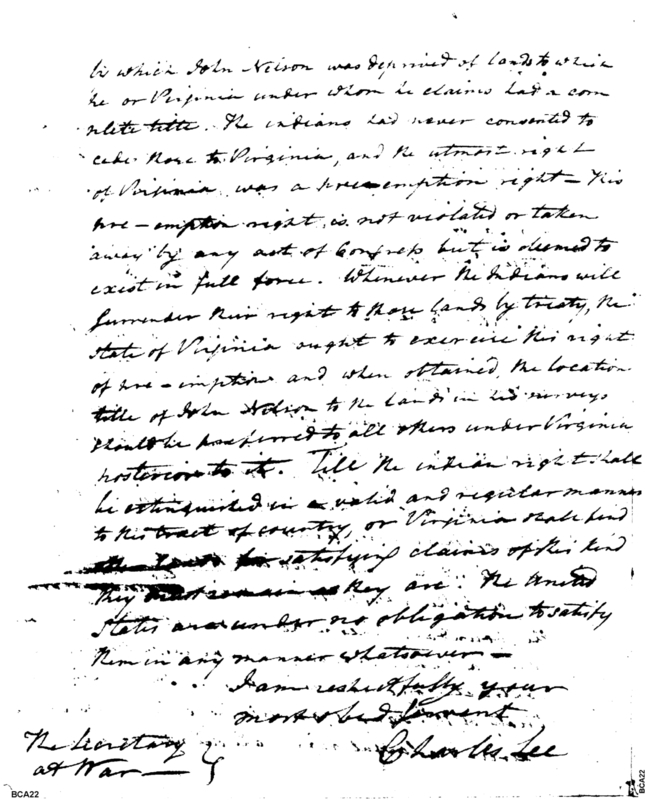 by which John Nelson was deprived of lands to which
he or Virginia under whom he claims had a com
plete title. The indians had never consented to
cede those to Virginia, and the utmost right
of Virginia was a pre-emption right – This
pre-emption right is not violated or taken
away by any act of Congress but is deemed to
exist in full force. Whenever the Indians will
surrender their right to those lands by treaty, the
state of Virginia ought to exercise this right
of pre-emption and when obtained, the location
title of John Nelson to the lands in his surveys
should be preferred to all others under Virginia
posterior to it. Till the indian right shall
be extinguished in a valid and regular manner
to this tract of country, or Virginia shall find
satisfying claims of this kind
they must remain as they are. The United
States are under no obligation to satisfy
them in any manner whatsoever –
I am respectfully your
most obed Servent
Charles Lee
The Secretary
at War
BCA22
BCA22